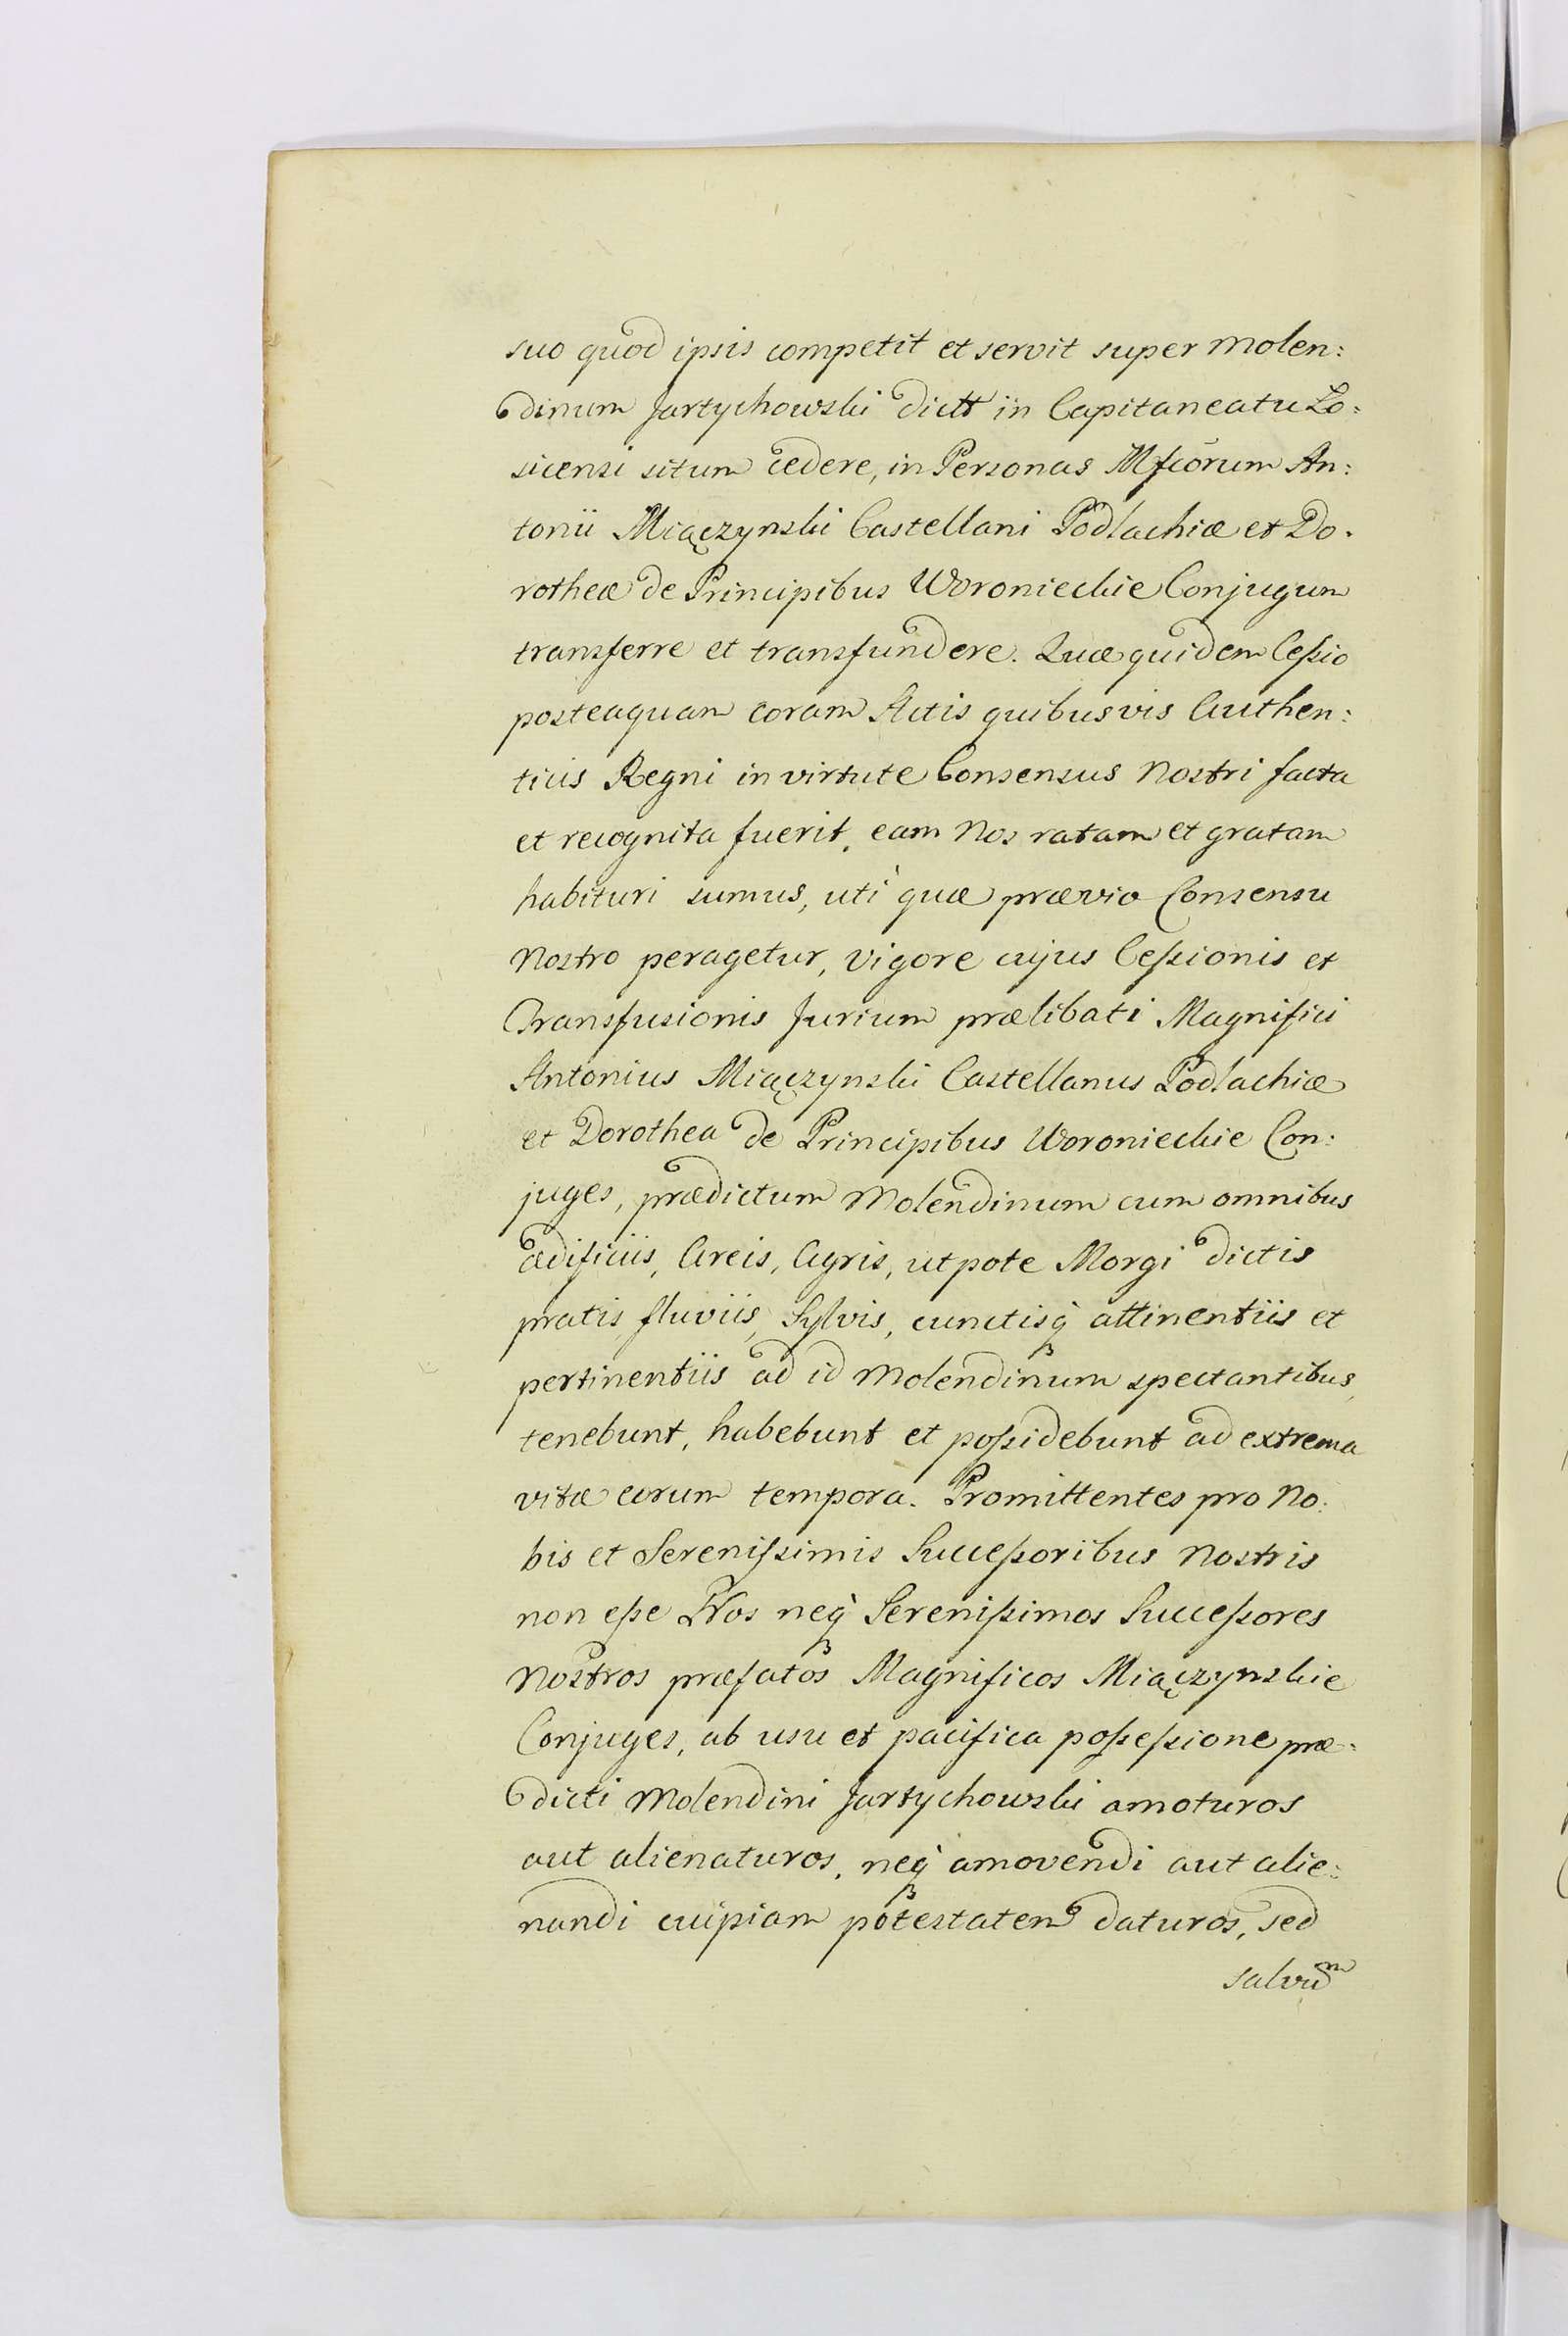 suo quod ipsis competit et servit super molen:
dinum Jartychowski dictt in Capitaneatu Lo:
sicensi situm cedere, in Personas Mfcōrum An:
tonii Miączynski Castellani Podlachiæ et Do:
rotheæ de Principibus Woronieckie Conjugum
transferre et transfundere. Quæ quidem Ceßio
posteaquam coram Actis quibusvis Authen:
ticis Regni in virtute Consensus Nostri facta
et recognita fuerit, eam Nos ratam et gratam
habituri sumus, utì quæ prævio Consensu
Nostro peragetur, vigore cujus Ceßionis et
Transfusionis Jurium prælibati Magnifici
Antonius Miączynski Castellanus Podlachiæ
et Dorothea de Principibus Woronieckie Con:
juges, prædictum Molendinum cum omnibus
ædificiis, Areis, Agris, utpote Morgi dictis
pratis, fluviis, Sylvis, cunctisq̀ attinentiis et
pertinentiis ad id Molendinum spectantibus,
tenebunt, habebunt et poßidebunt ad extrema
vitæ eorum tempora. Promittentes pro No:
bis et Serenißimis Succeßoribus Nostris
non eße Nos neq̀ Serenißimos Succeßores
Nostros præfatos Magnificos Miączynskie
Conjuges, ab usu et pacifica poßeßione præ:
dicti Molendini Jartychowski amoturos
aut alienaturos, neq̀ amovendi aut alie:
nandi cuipiam potestatem daturos, sed
salvuᵐ